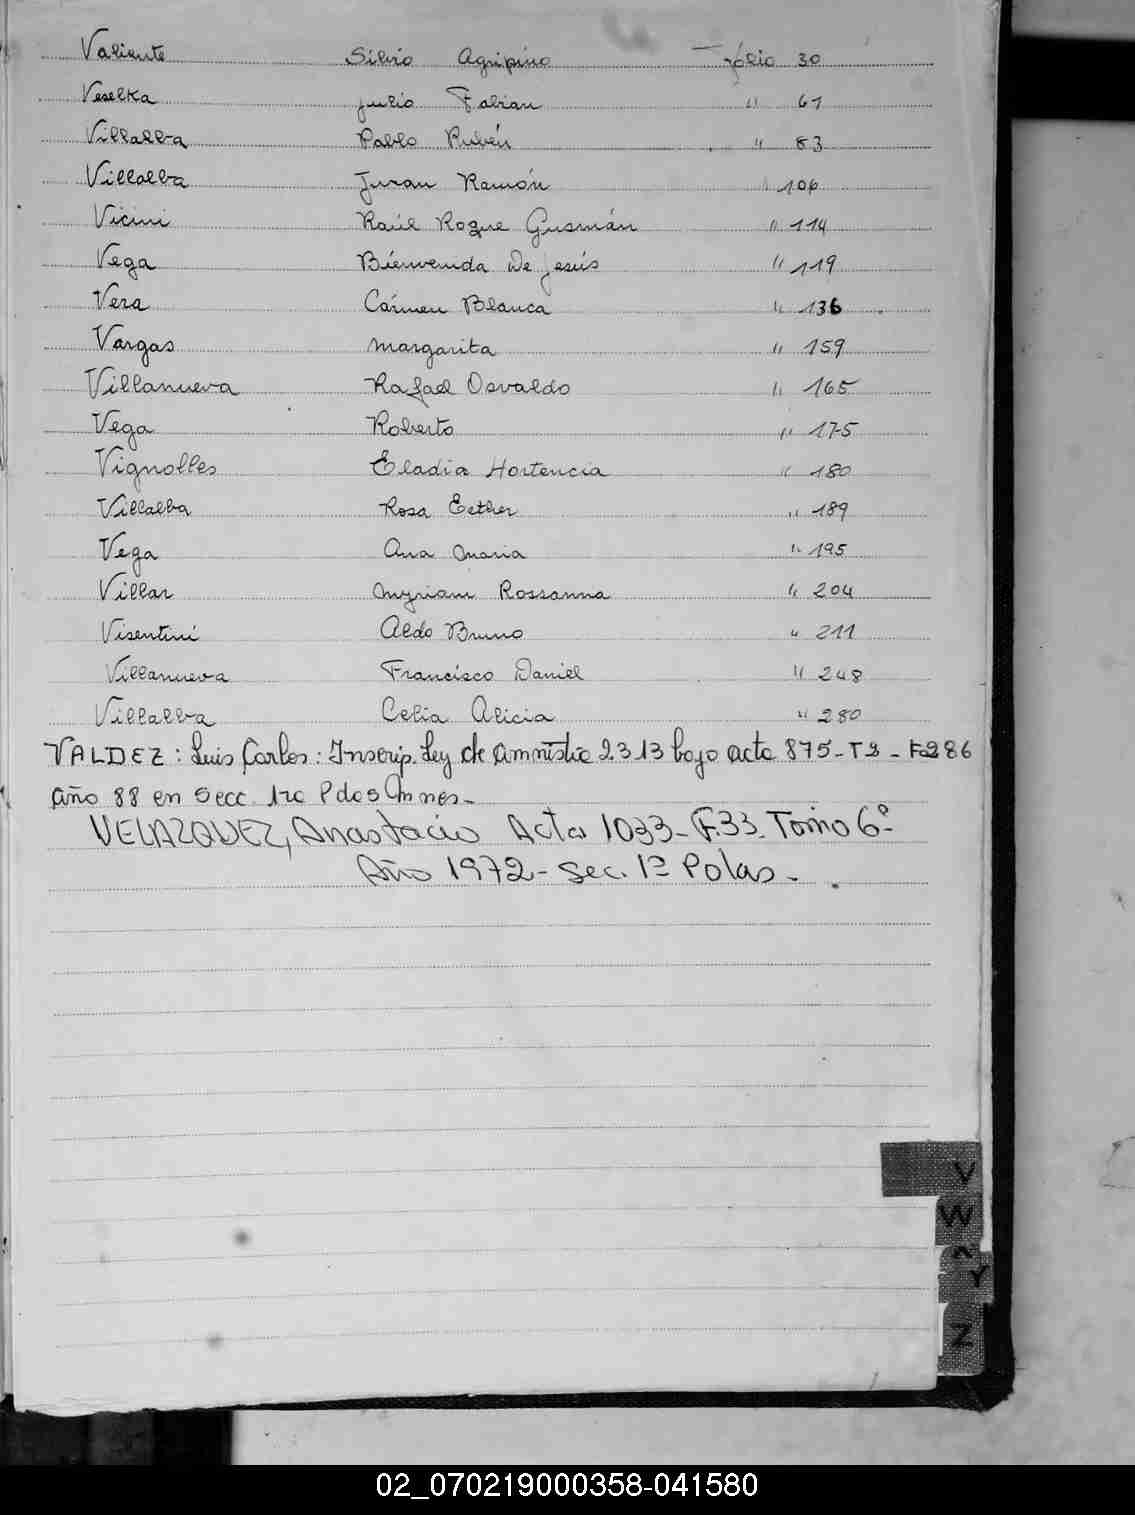 Valiente Silvio Agripino folio 30
Veselka Julio Fabian " 61
Villalba Pablo Rubén " 83
Villalba Juan Ramón " 106
Vicini Raúl Roque Gusmán " 114
Vega Bienvenida De Jesús " 119
Vera Cármen Blanca " 136
Vargas Margarita " 159
Villanueva Rafael Osvaldo " 165
Vega Roberto " 175
Vignolles Eladia Hortencia " 180
Villalba Rosa Esther " 189
Vega Ana Maria " 195
Villar Myriam Rossanna " 204
Visentini Aldo Bruno " 211
Villanueva Francisco Daniel " 248
Villalba Celia Alicia " 280
VALDEZ: Luis Carlos: Inscrip. Ley de Amnistía 2313 bajo acta 875-T3-F286
año 88 en Secc. 1ra
VELAZQUEZ, Anastacio Acta 1033-F.33-Tomo 6º-
Año 1972-Sec. 1ª Polas-
V
W
Y
Z
02_070219000358-041580